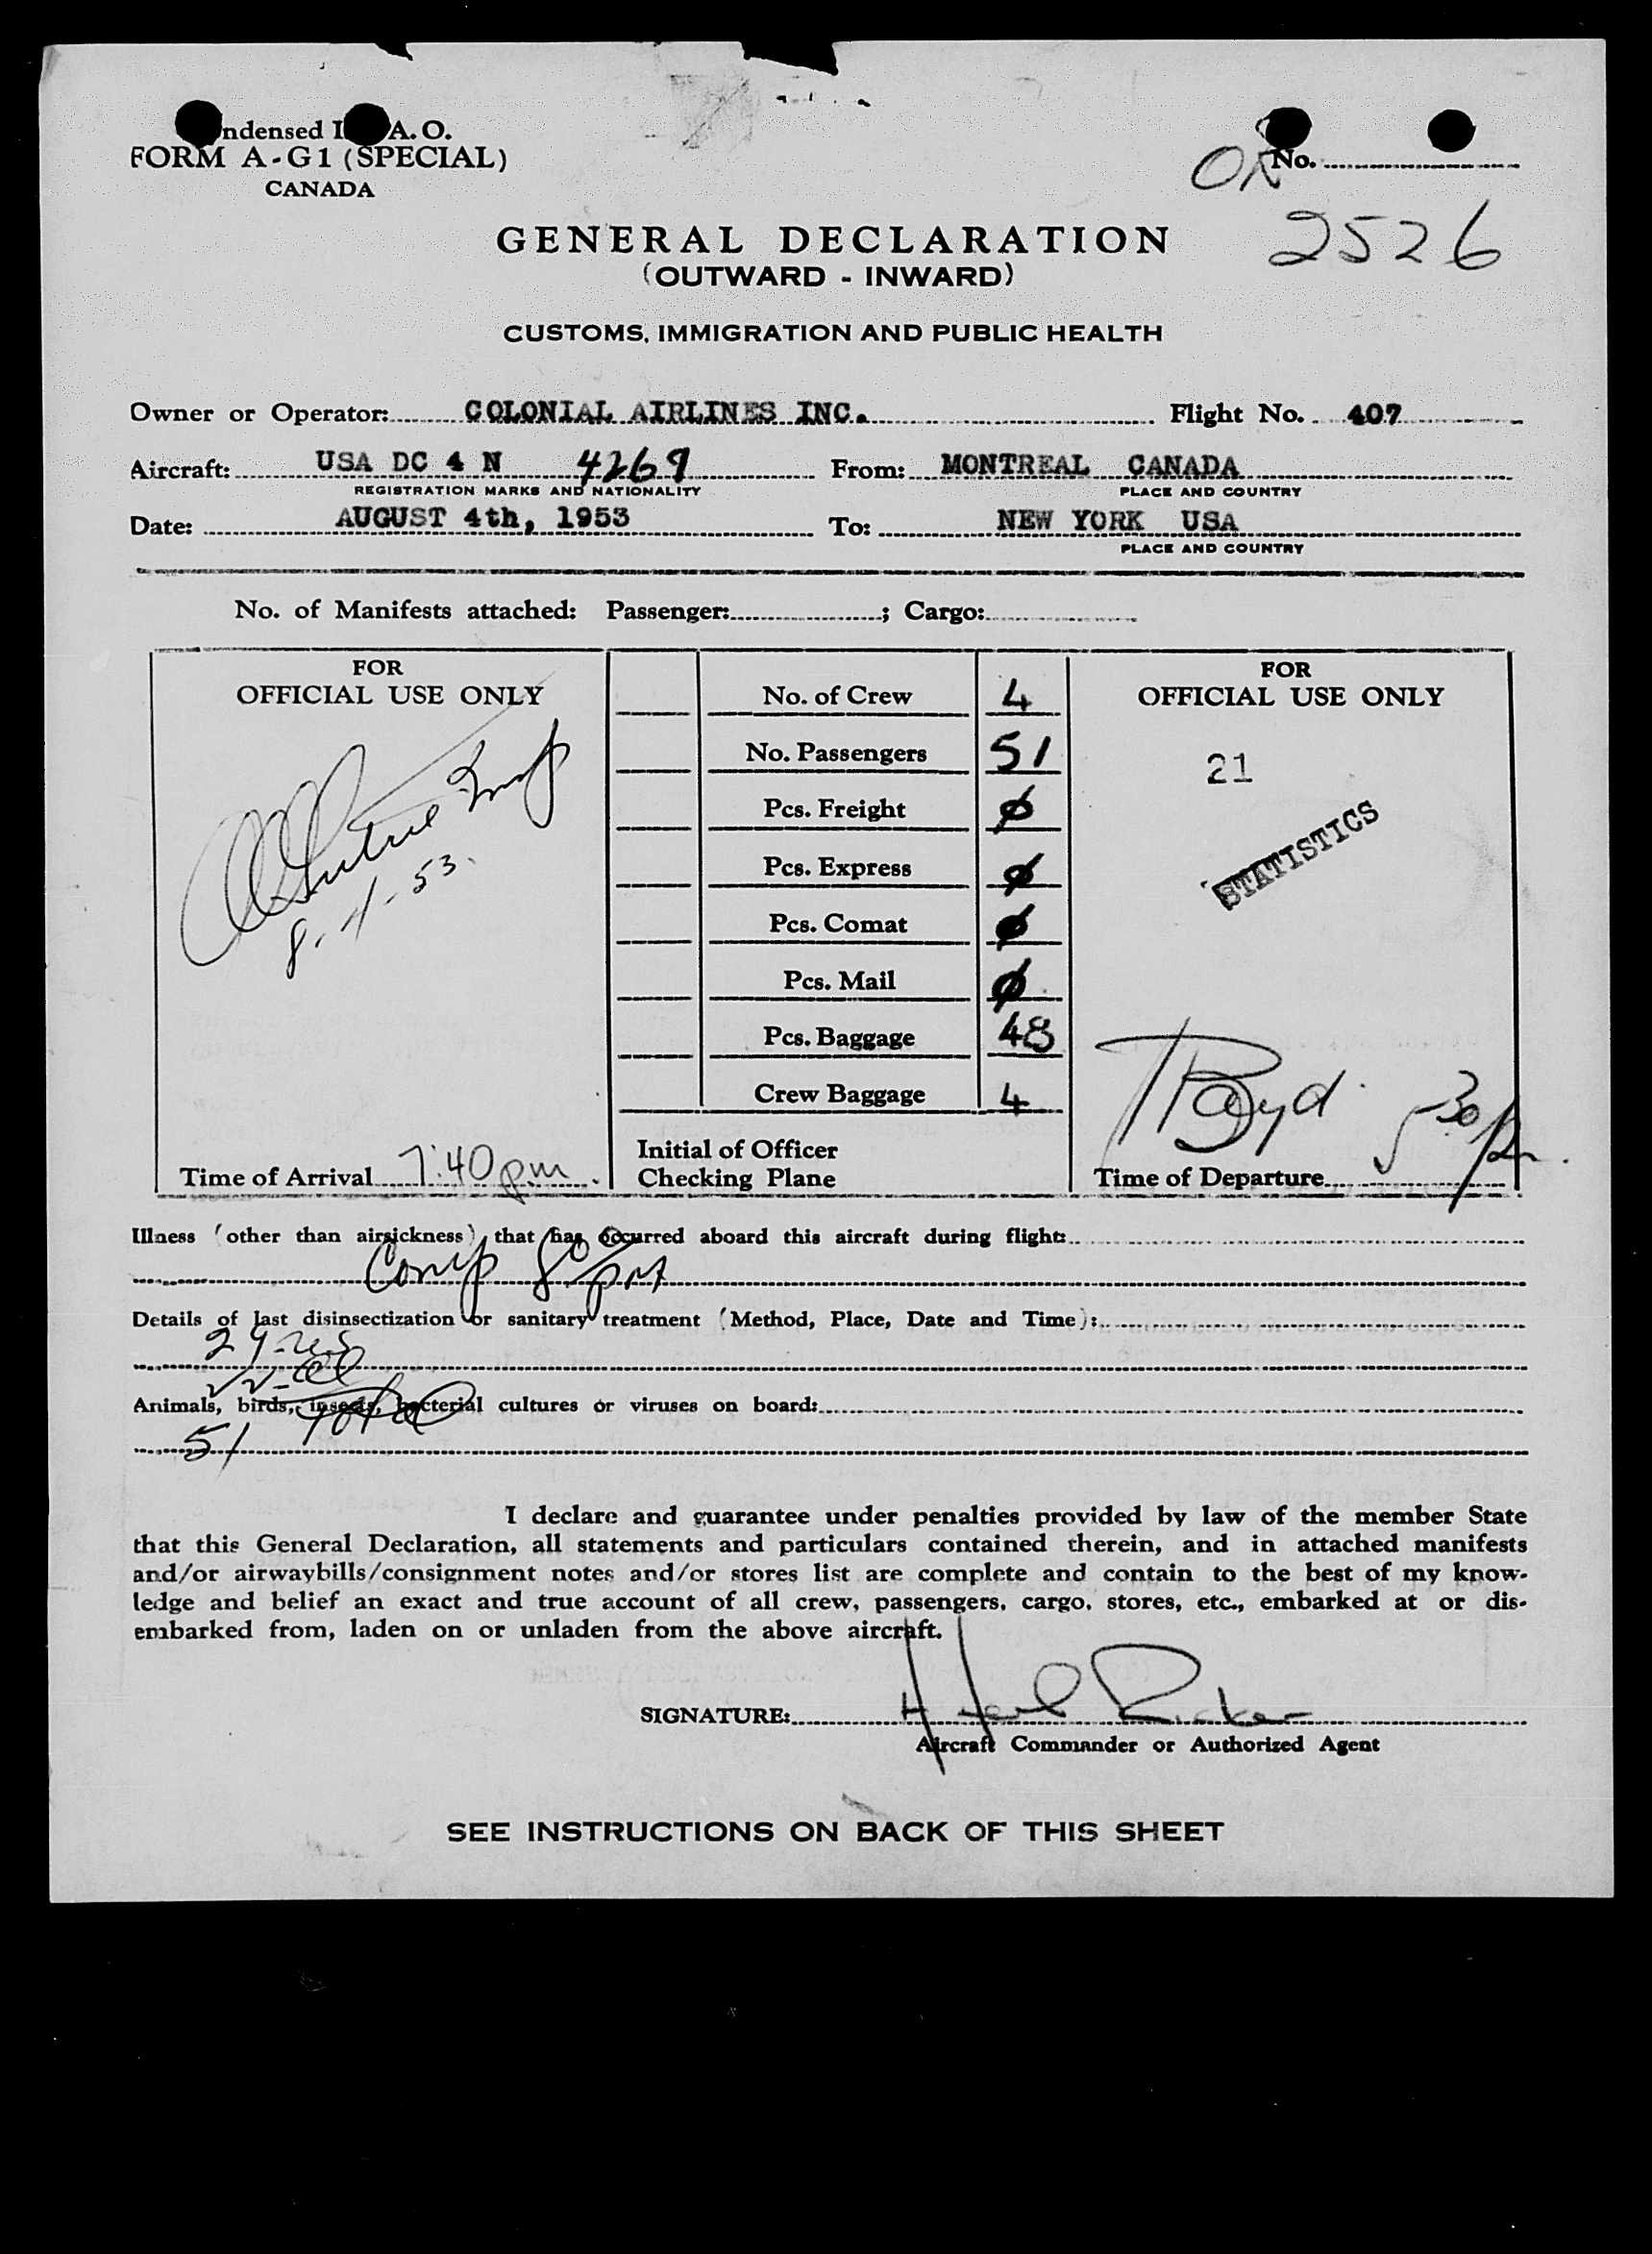 ndensed I A. O.
FORM A-G1 (SPECIAL)
CANADA
OK No.
2526
GENERAL DECLARATION
(OUTWARD - INWARD)
CUSTOMS, IMMIGRATION AND PUBLIC HEALTH
Owner or Operator: COLONIAL AIRLINES INC. Flight No. 407
Aircraft: USA DC 4 N 4269 From: MONTREAL CANADA
REGISTRATION MARKS AND NATIONALITY PLACE AND COUNTRY
Date: AUGUST 4th, 1953 To: NEW YORK USA
PLACE AND COUNTRY
No. of Manifests attached: Passenger: ; Cargo:
FOR
OFFICIAL USE ONLY
8-4-53
Time of Arrival 7:40 pm
No. of Crew 4
No. Passengers 51
Pcs. Freight ø
Pcs. Express ø
Pcs. Comat ø
Pcs. Mail ø
Pcs. Baggage 48
Crew Baggage 4
Initial of Officer
Checking Plane
FOR
OFFICIAL USE ONLY
21
STATISTICS
Boyd 5-30 pm
Time of Departure
Illness (other than airsickness) that has occurred aboard this aircraft during flight:
Comp 80 pm
Details of last disinsectization or sanitary treatment (Method, Place, Date and Time):
29-U.S
22-al
Animals, birds, insects, bacterial cultures or viruses on board:
51 Total
I declare and guarantee under penalties provided by law of the member State
that this General Declaration, all statements and particulars contained therein, and in attached manifests
and/or airwaybills/consignment notes and/or stores list are complete and contain to the best of my know-
ledge and belief an exact and true account of all crew, passengers, cargo, stores, etc., embarked at or dis-
embarked from, laden on or unladen from the above aircraft.
SIGNATURE: H Neil Ricker
Aircraft Commander or Authorized Agent
SEE INSTRUCTIONS ON BACK OF THIS SHEET